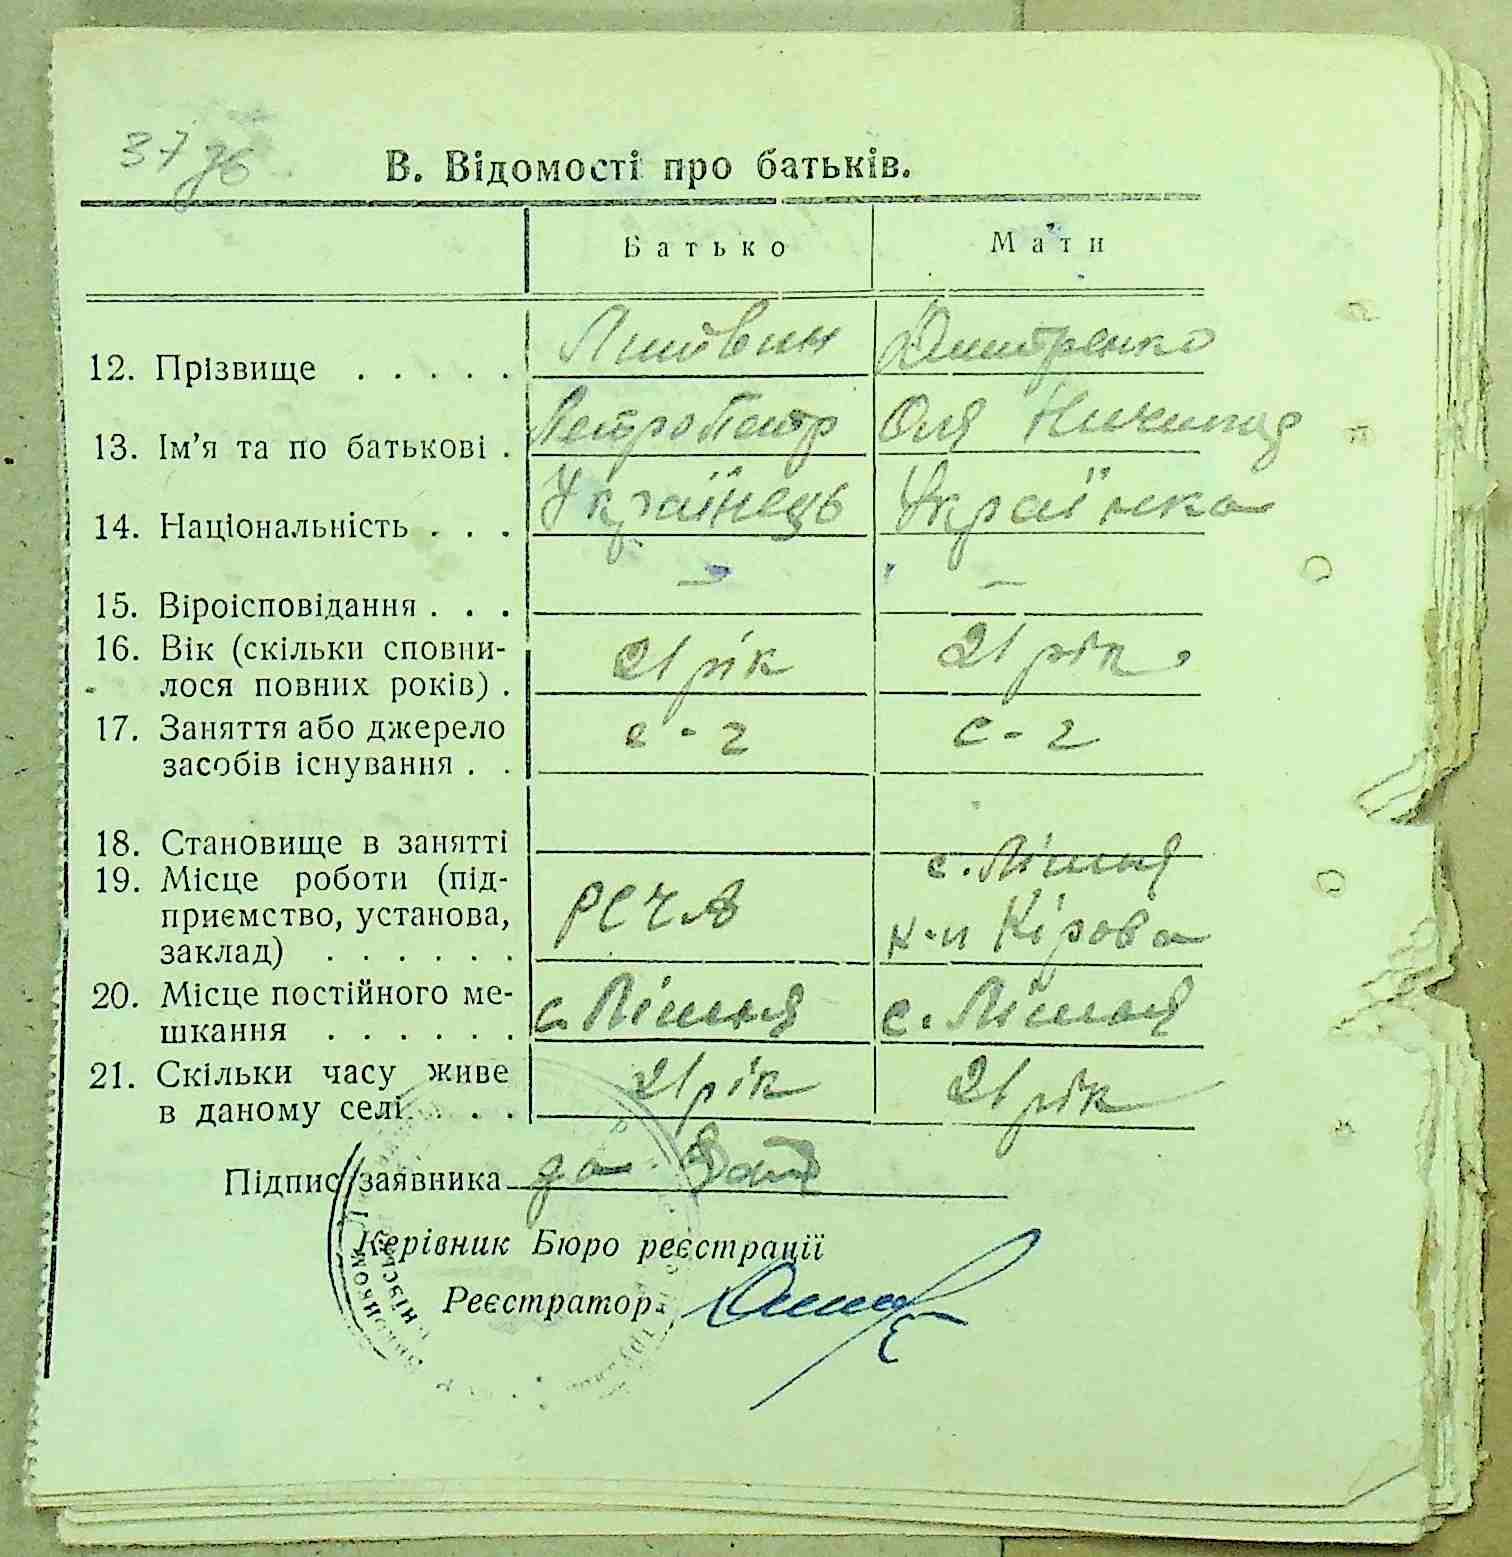 37 зв
В. Відомості про батьків.
Батько Мати
12. Прізвище . . . . . Литвин Дмитренко
13. Ім'я та по батькові . Петро Петр Оля Ничипор
14. Національність . . . Українець Українка
15. Віроісповідання . . . — —
16. Вік (скільки сповни-
лося повних років) . 21 рік 21 рік
17. Заняття або джерело
засобів існування . . с-г с-г
18. Становище в занятті
19. Місце роботи (під-
приємство, установа,
заклад) . . . . . . РСЧА с. Лішня к-п Кірова
20. Місце постійного ме-
шкання . . . . . . с. Лішня с. Лішня
21. Скільки часу живе
в даному селі . . . . 21 рік 21 рік
Підпис заявника
Керівник Бюро реєстрації
Реєстратор